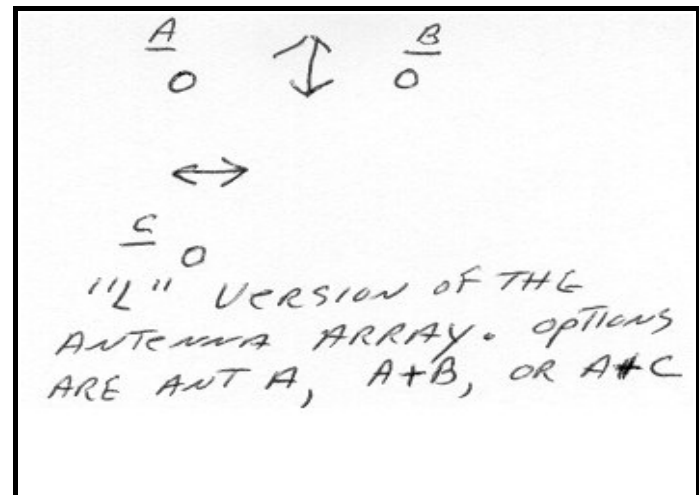 A B
C
"L" VERSION OF THE
ANTENNA ARRAY. OPTIONS
ARE ANT A, A+B, OR A+C